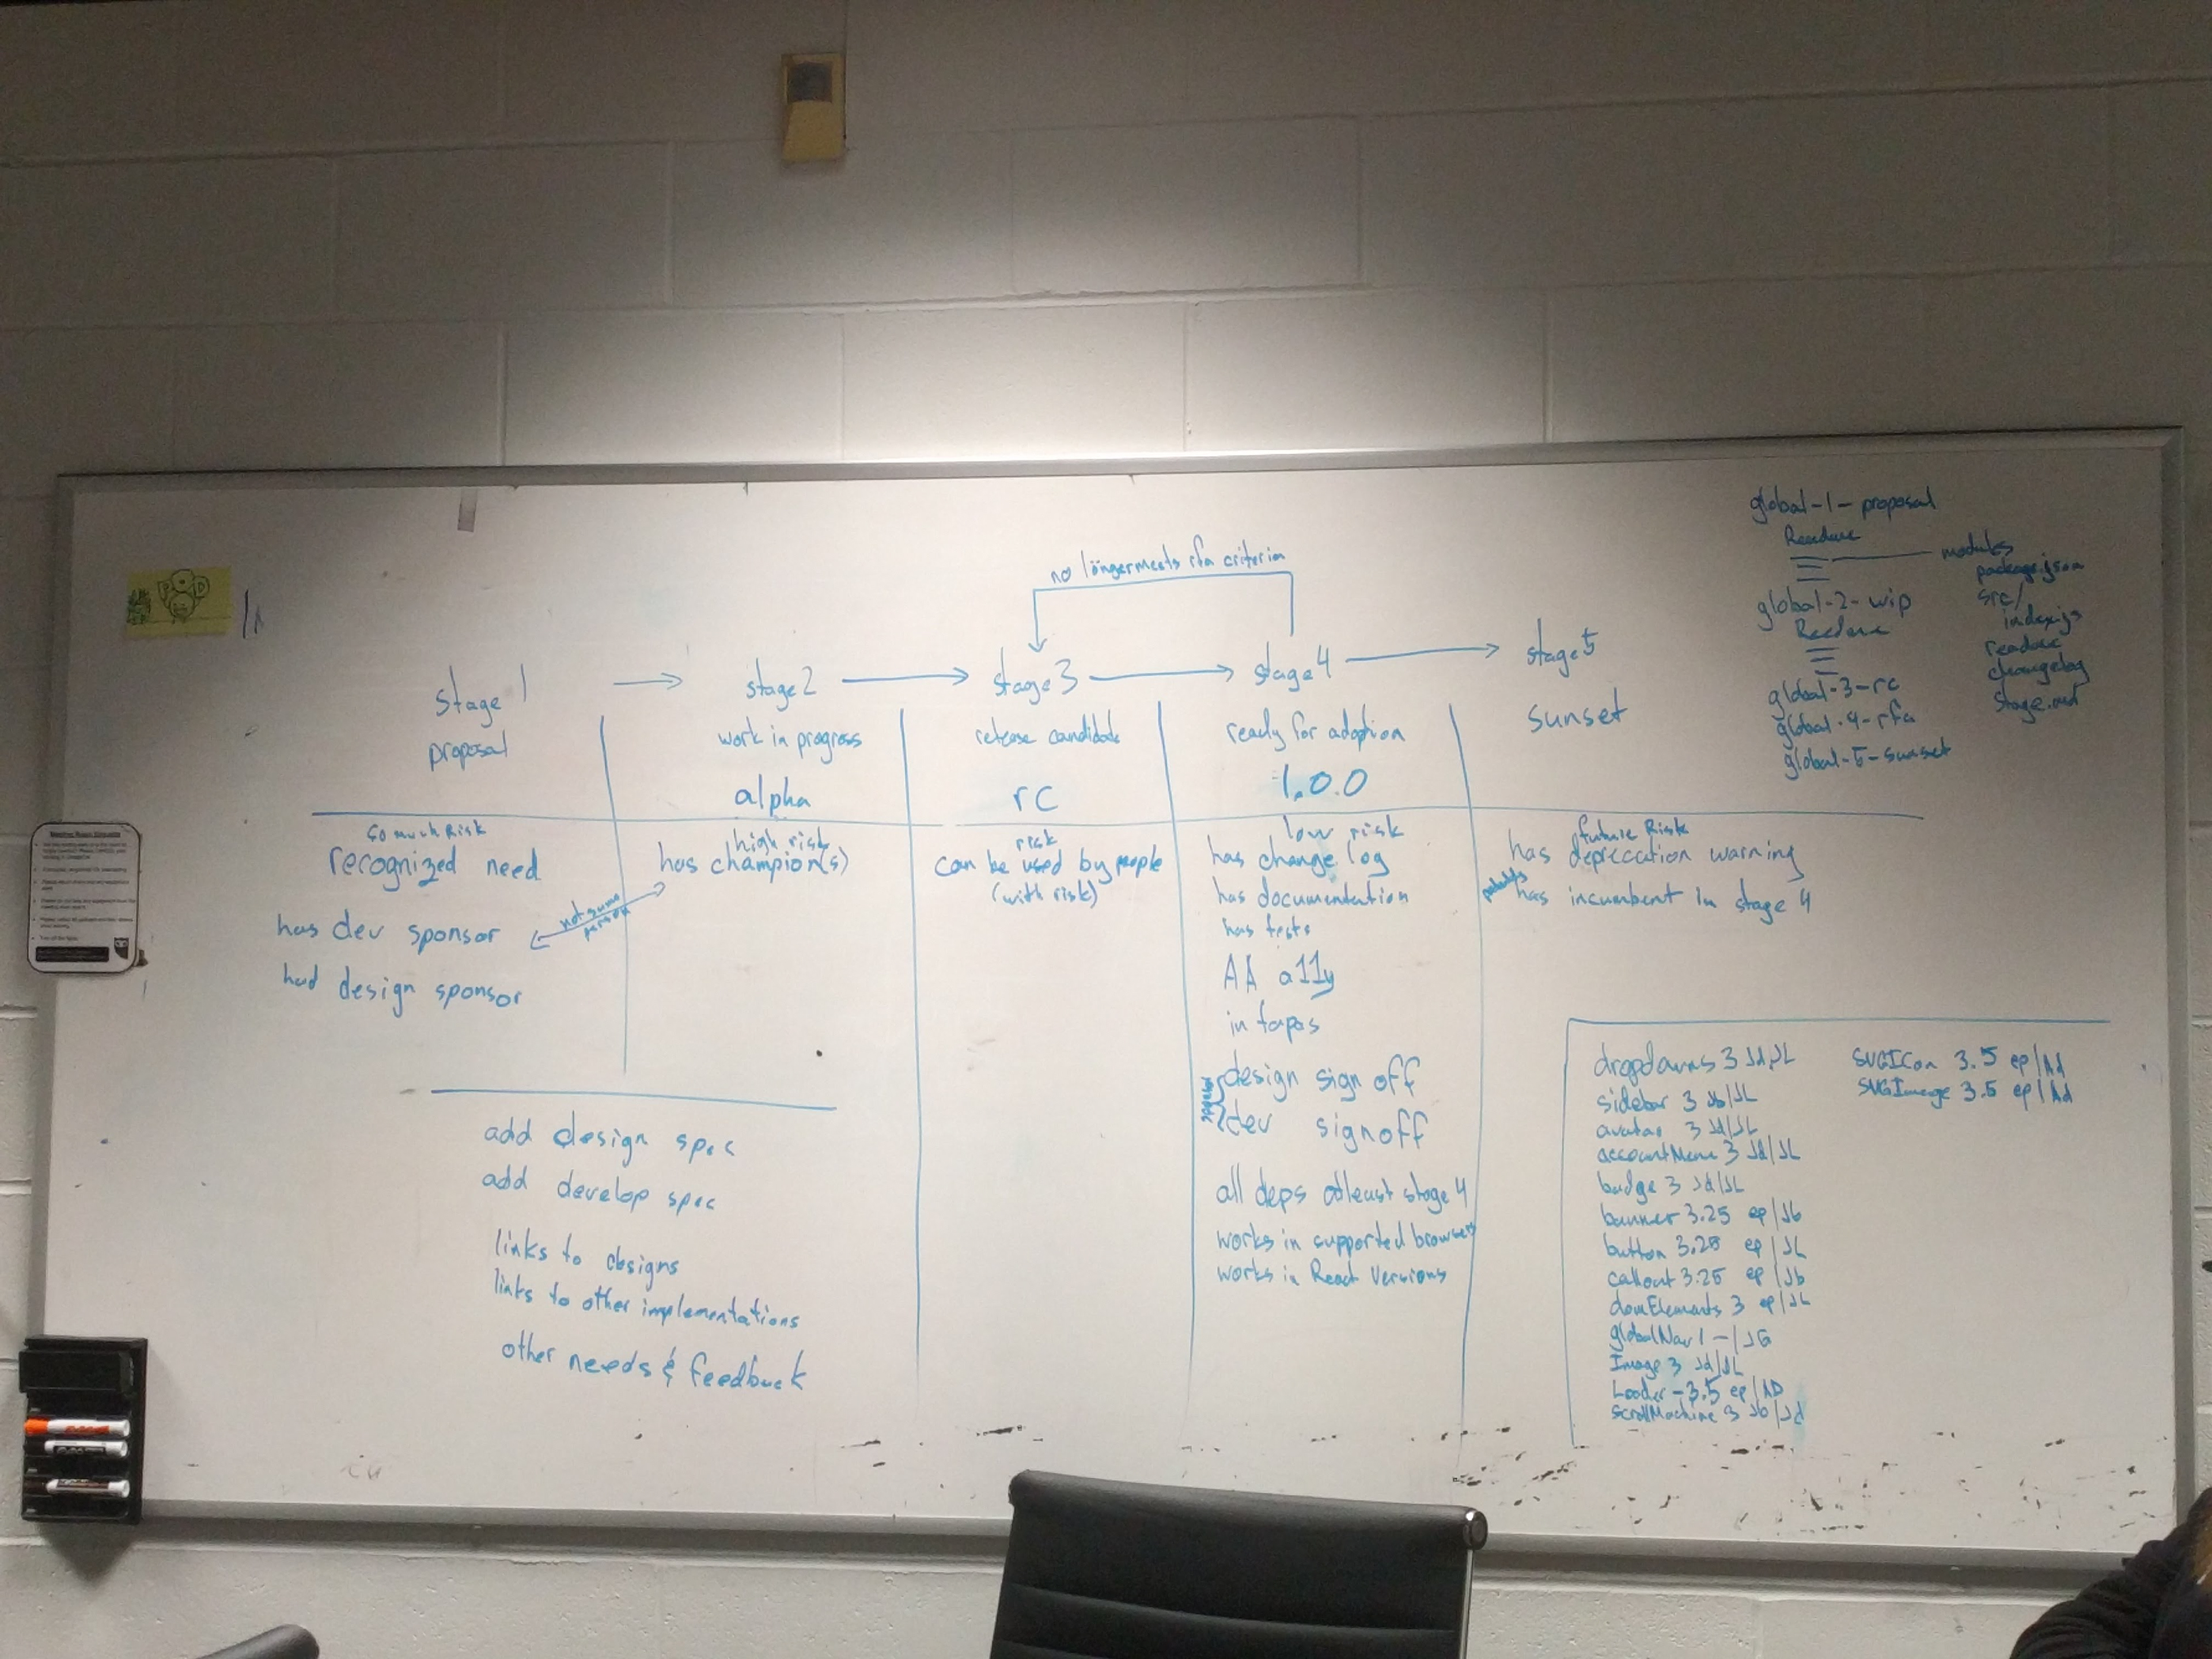 POD
no longer meets rfa criteria
stage 1
proposal
stage 2
work in progress
alpha
stage 3
release candidate
rc
stage 4
ready for adoption
1.0.0
stage 5
sunset
so much Risk
recognized need
has dev sponsor
had design sponsor
not same
person
high risk
has champion(s)
risk
can be used by people
(with risk)
low risk
has change log
has documentation
has tests
AA a11y
in tapas
design sign off
dev signoff
all deps atleast stage 4
works in supported browsers
works in React Versions
future Risk
has deprecation warning
has incumbent in stage 4
add design spec
add develop spec
links to designs
links to other implementations
other needs & feedback
global-1-proposal
Readme
modules
package.json
src/
index.js
readme
changelog
stage.md
global-2-wip
Readme
global-3-rc
global-4-rfa
global-5-sunset
dropdowns 3 Jd/JL
sidebar 3 Jb/JL
avatar 3 Jd/JL
accountMenu 3 Jd/JL
badge 3 Jd/JL
banner 3.25 ep/Jb
button 3.25 ep/JL
callout 3.25 ep/Jb
domElements 3 ep/JL
globalNav 1 -/JG
Image 3 Jd/JL
Loader - 3.5 ep/AD
scrollMachine 3 Jb/Jd
SVGIcon 3.5 ep/Ad
SVGImage 3.5 ep/Ad